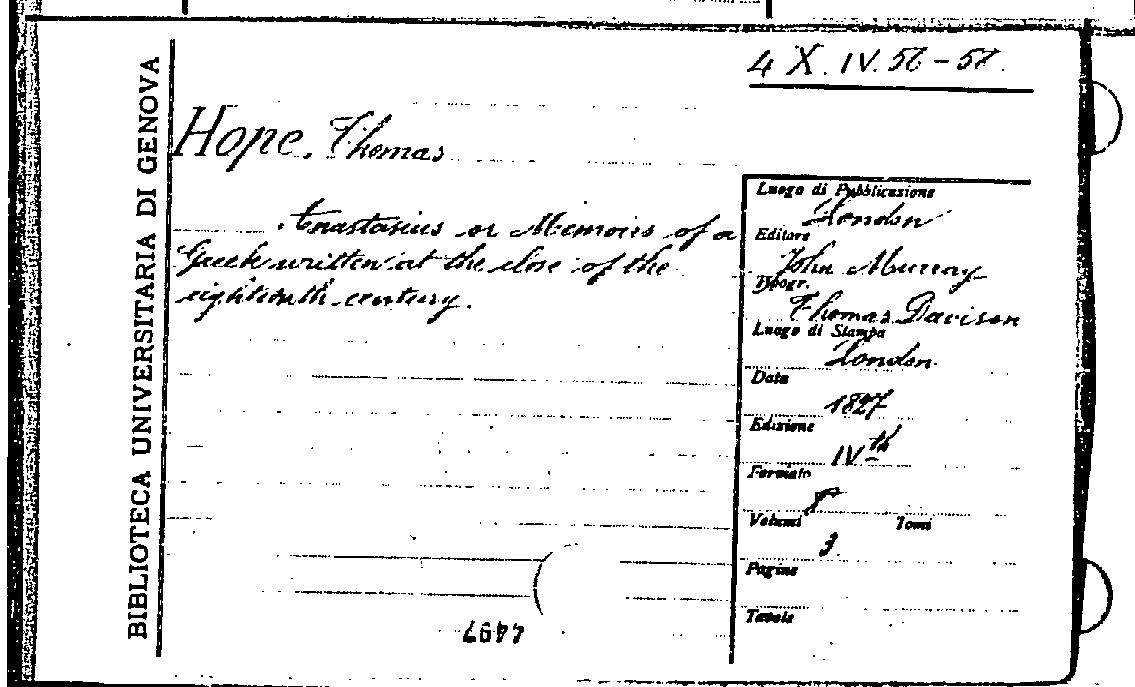 BIBLIOTECA UNIVERSITARIA DI GENOVA
4 X. IV. 56-58.
Hope, Thomas
Anastasius or Memoirs of a
Greek written at the close of the
eighteenth century.
Luogo di Pubblicazione
London
Editore
John Murray
Tipogr.
Thomas Davison
Luogo di Stampa
London
Data
1827
Edizione
IVth
Formato
8°
Volumi Tomi
3
Pagine
Tavole
4497